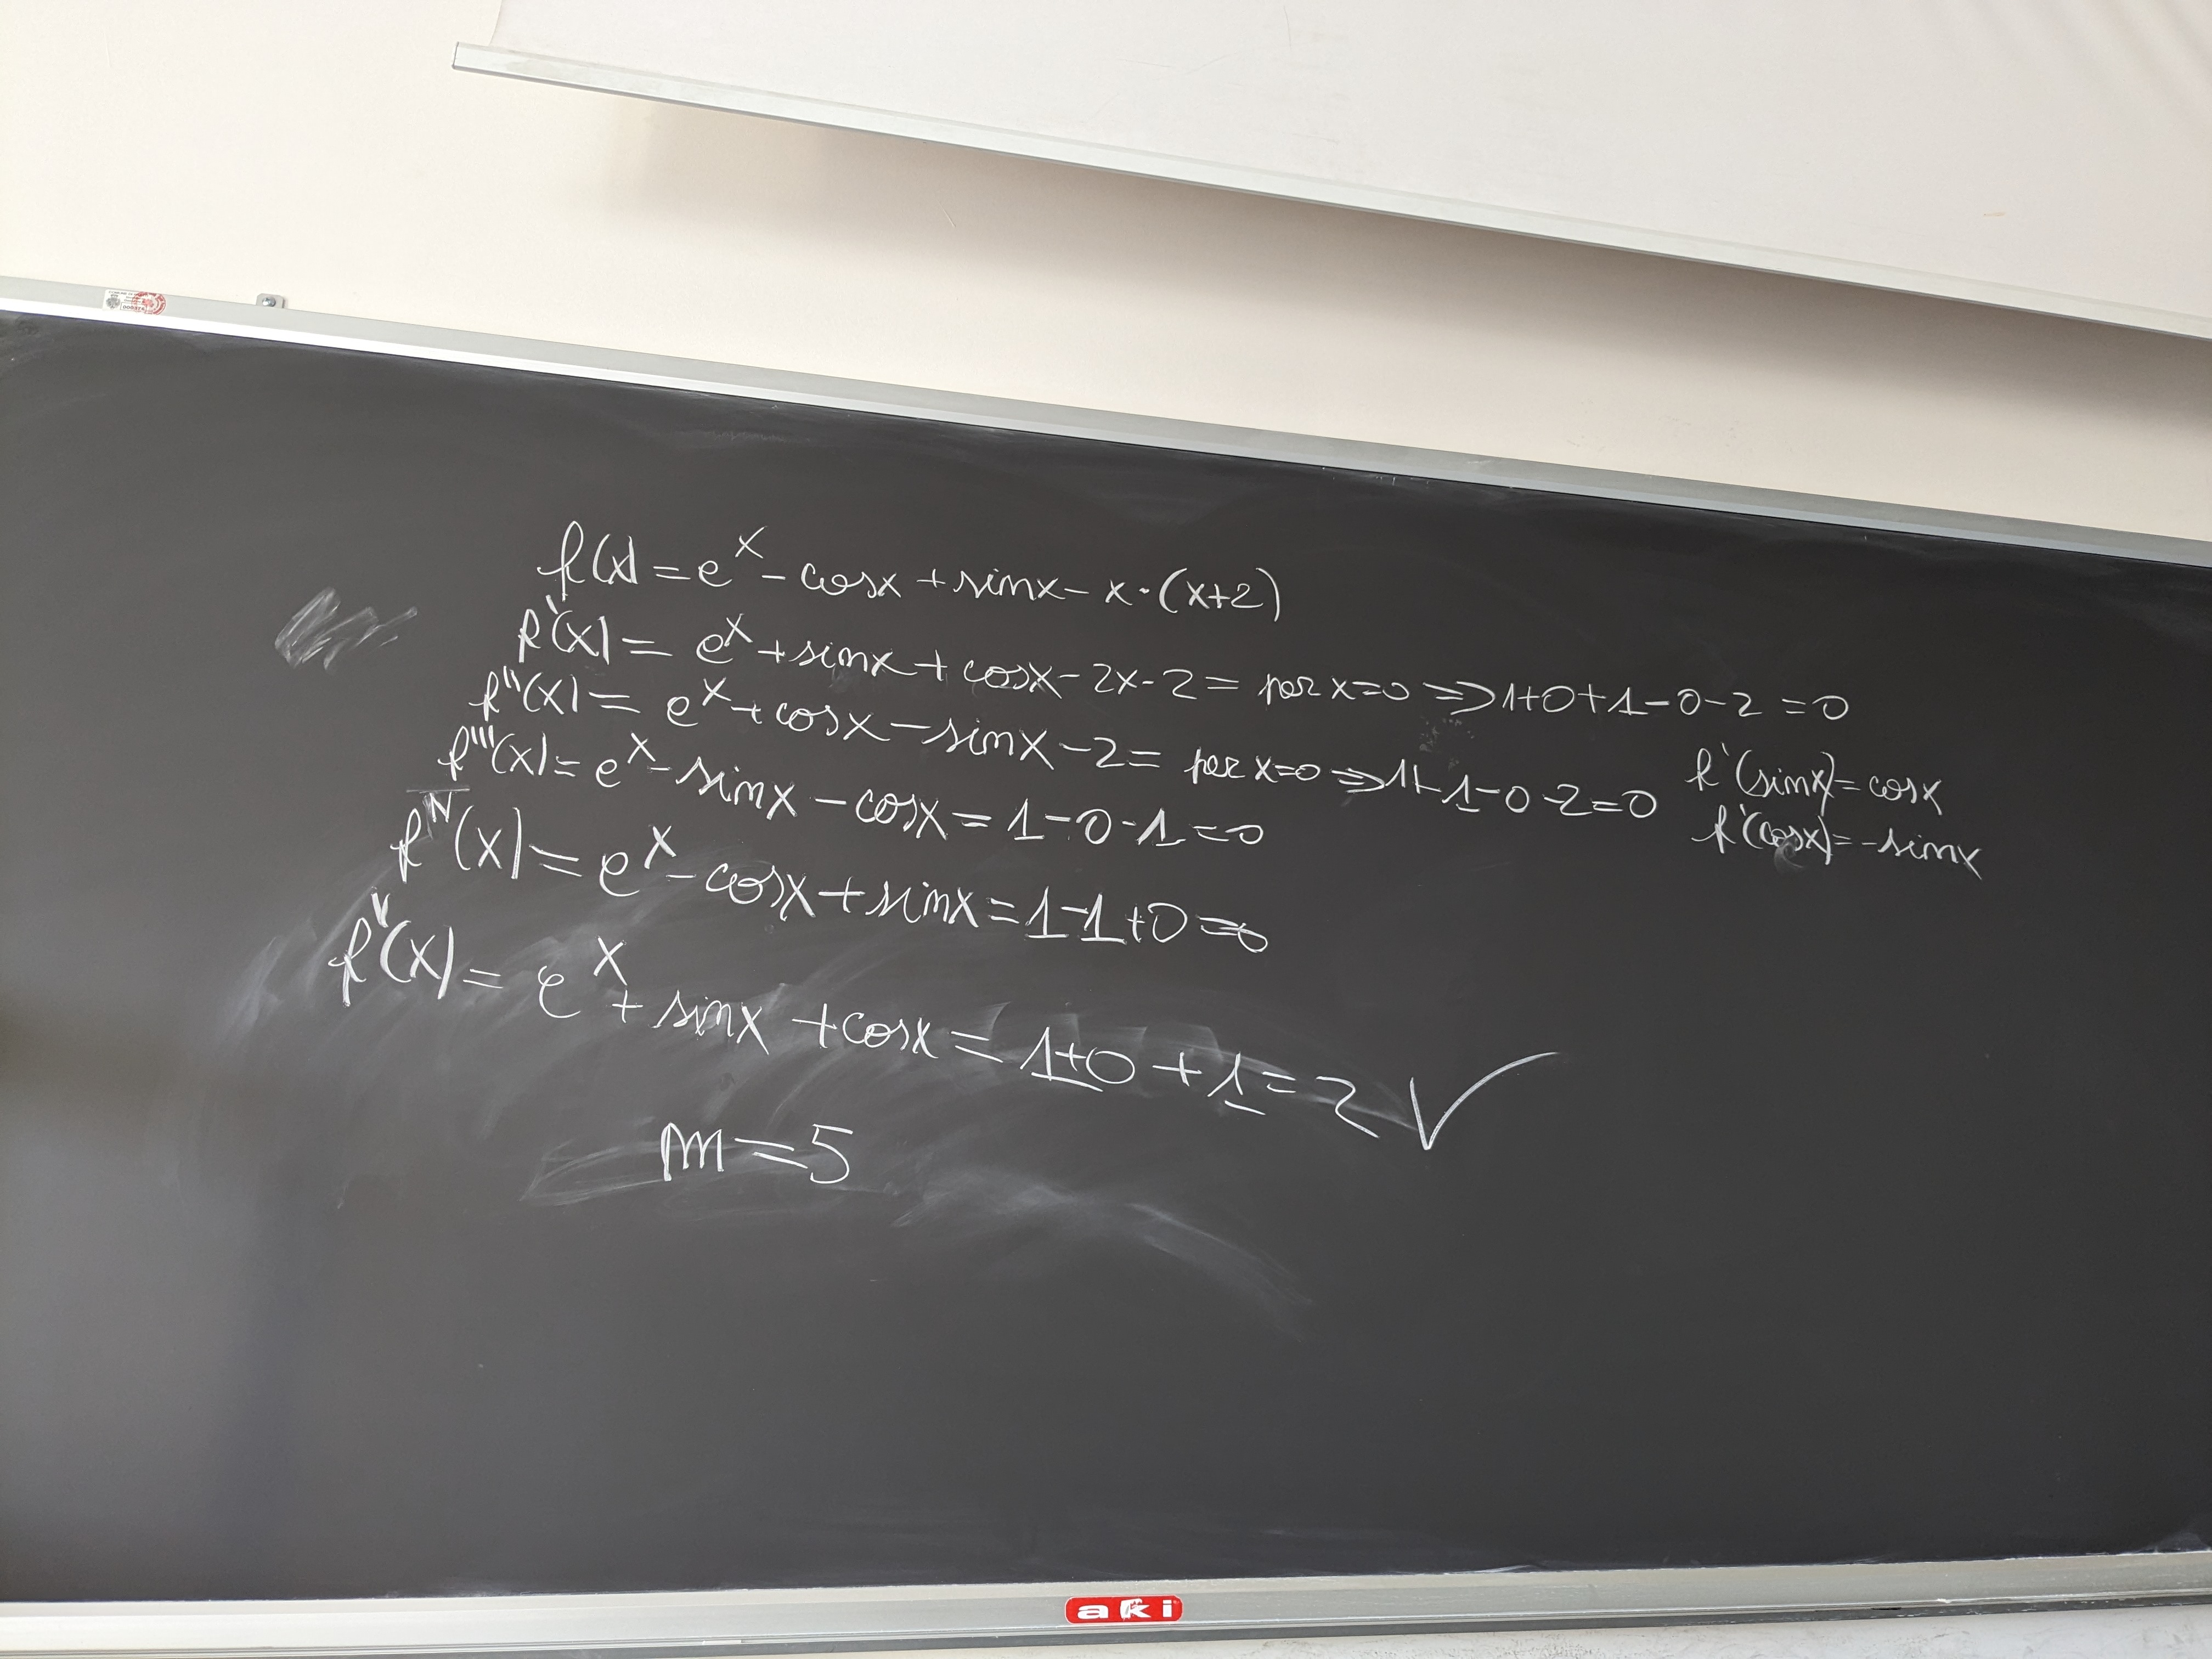 f(x) = e^x - cosx + sinx - x·(x+2)
f'(x) = e^x + sinx + cosx - 2x - 2 = per x=0 ⇒ 1+0+1-0-2 = 0
f''(x) = e^x + cosx - sinx - 2 = per x=0 ⇒ 1+1-0-2=0
f'''(x) = e^x - sinx - cosx = 1-0-1=0
f^IV(x) = e^x - cosx + sinx = 1-1+0=0
f^V(x) = e^x + sinx + cosx = 1+0+1=2 ✓
m=5
f'(sinx)=cosx
f'(cosx)=-sinx
aki